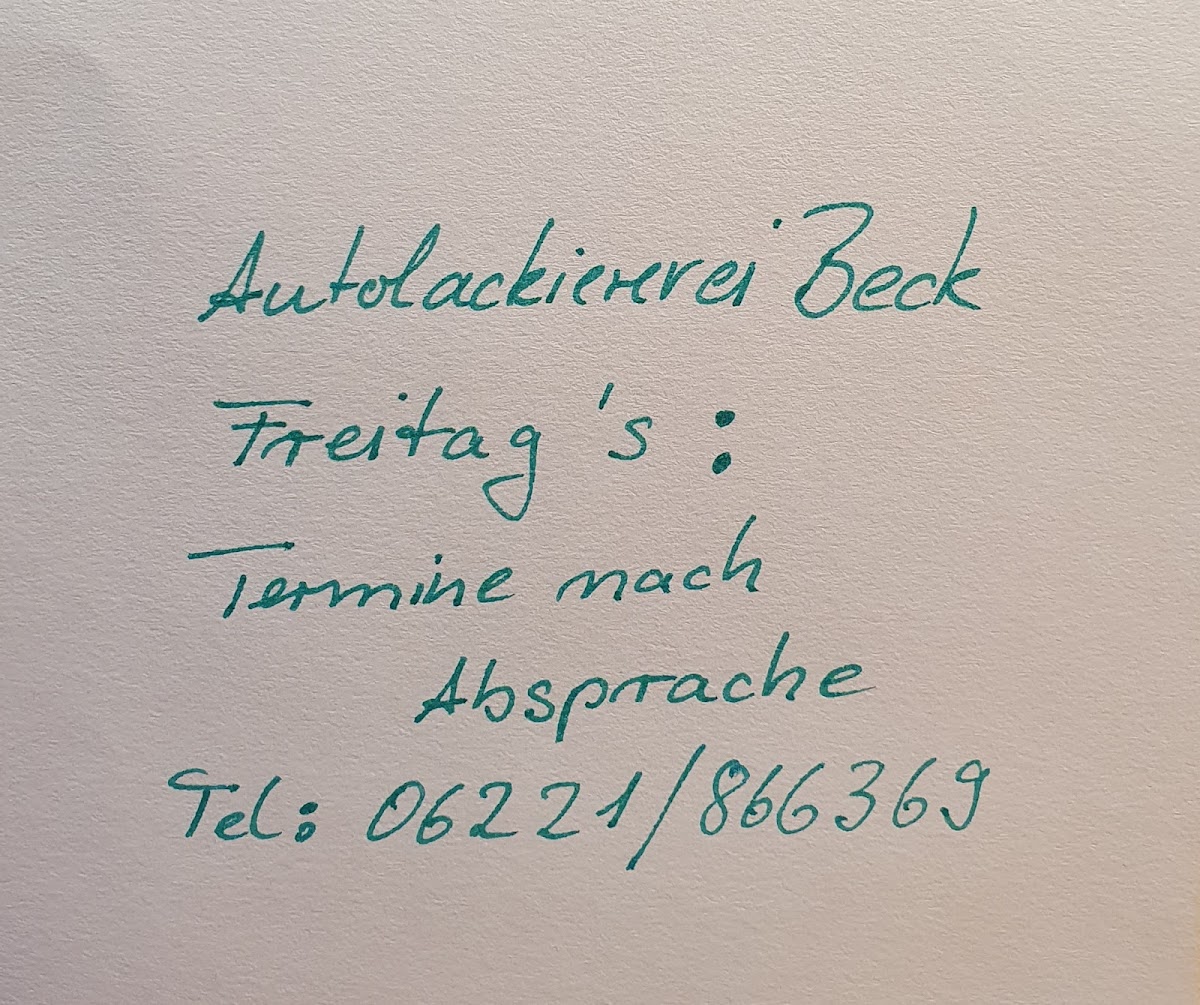 Autolackiererei Beck
Freitag's:
Termine nach
Absprache
Tel: 06221/866369